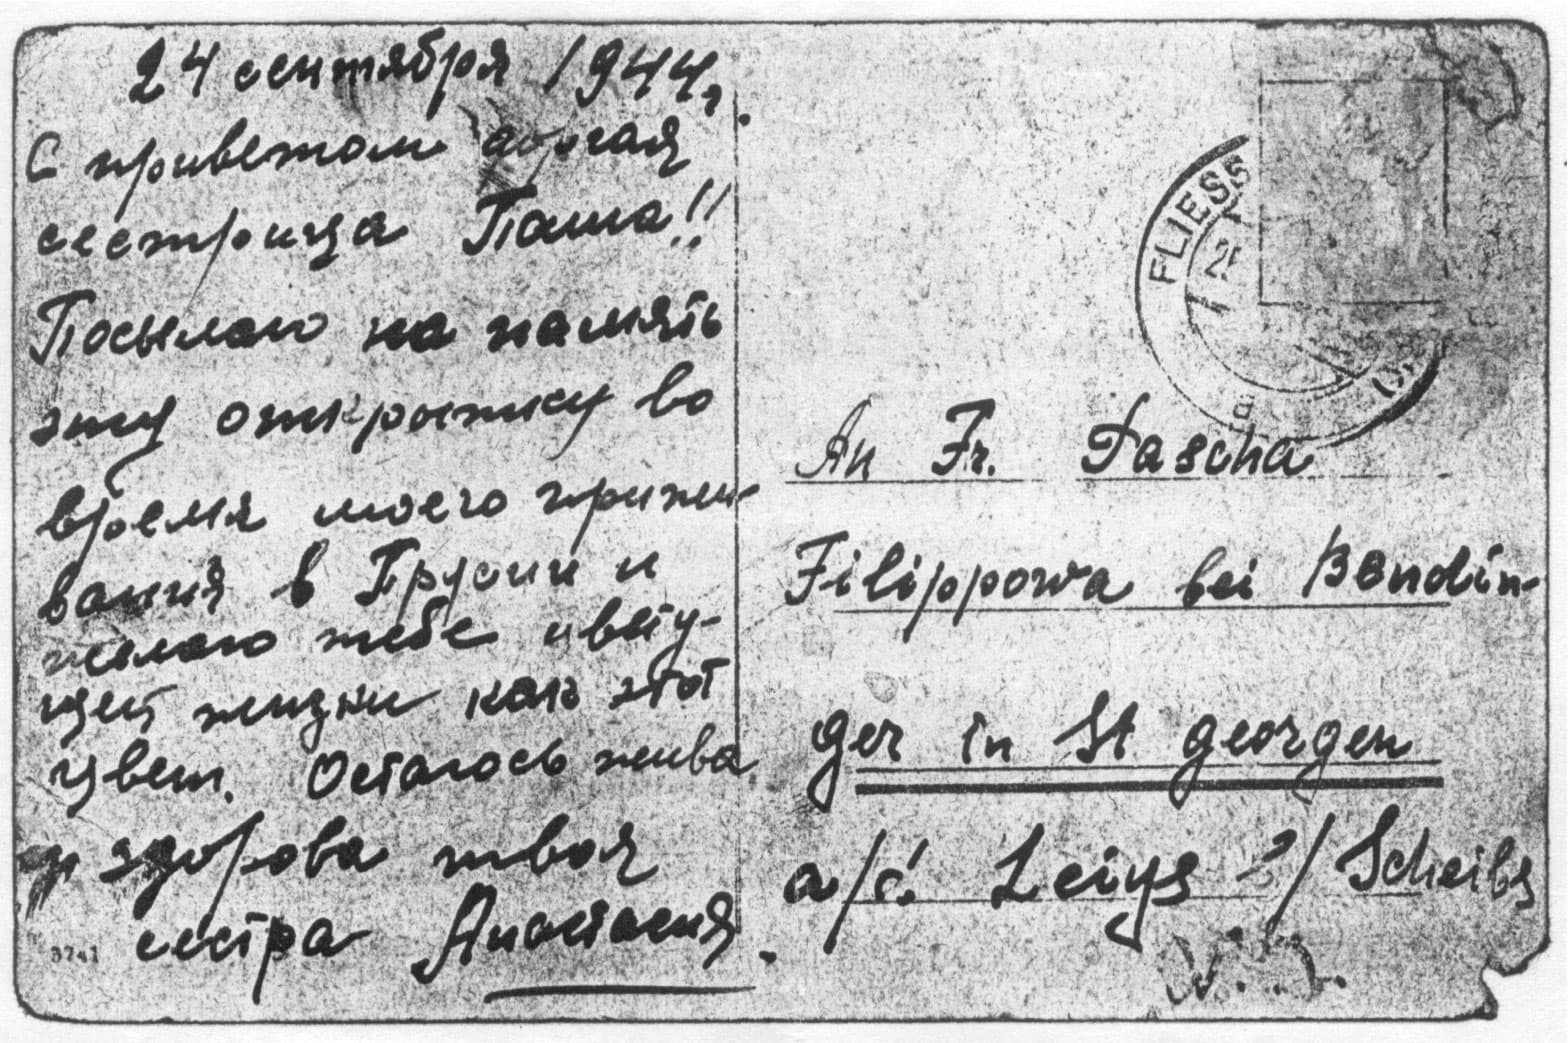 24 сентября 1944 г.
С приветом дорогая
сестрица Паша!!
Посылаю на память
эту открытку во
время моего прожи-
вания в Прусии и
желаю тебе цвету-
щей жизни как этот
цвет. Остаюсь жива
и здорова твоя
сестра Анастасия.
3741
FLIESS
An Fr. Pascha
Filippowa bei Bendin-
ger in St georgen
a/d.